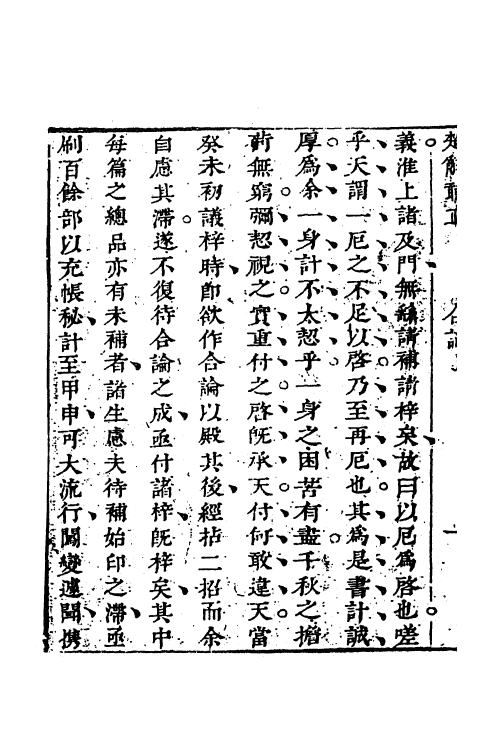 楚辭聽直　合論
義淮上諸及門無繇請補請梓矣故曰以厄爲啓也嗟
乎天謂一厄之不足以啓乃至再厄也其爲是書計誠
厚爲余一身計不太恝乎一身之困苦有盡千秋之擔
荷無窮彌恝視之實重付之啓旣承天付何敢違天當
癸未初議梓時卽欲作合論以殿其後經拈二招而余
自慮其滯遂不復待合論之成亟付諸梓旣梓矣其中
每篇之總品亦有未補者諸生慮夫待補始印之滯亟
刷百餘部以充帳秘計至甲申可大流行聞變遽閣携